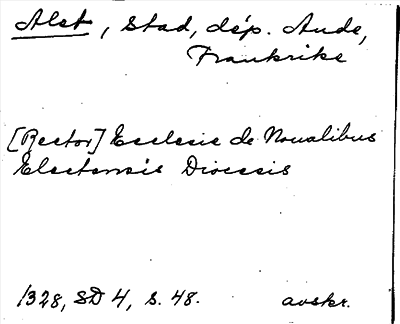 Alet, Stad, dép. Aude,
Frankrike
[Rector] Ecclesie de Noualibus
Electensis Diocesis
1328, SD 4, s. 48. avskr.